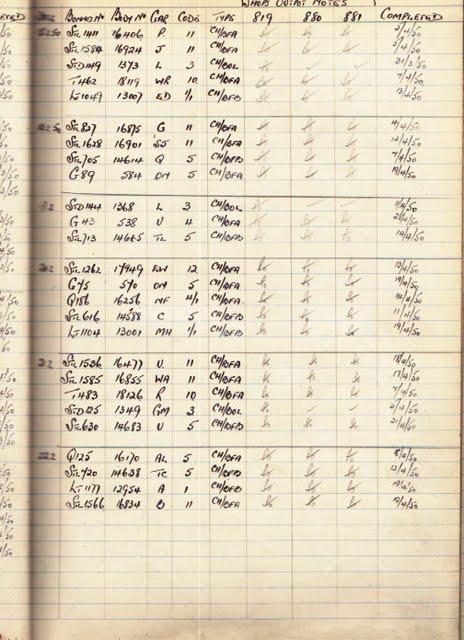 WHOPS OUTPUT NOTES
BONNET NO BODY NO GAR CODE TYPE 819 880 881 COMPLETED
STL 1411 16406 P. 11 CH/OFA 5/4/50
STL 1584 16924 J 11 CH/OFA 5/4/50
STD 1149 1373 L 3 CH/OOL 31/3/50
T 462 18119 WR 10 CH/OFA 4/4/50
LT 1049 13007 ED 1/1 CH/OFB 13/4/50
STL 827 16875 G 11 CH/OFA 11/4/50
STL 1628 16901 SJ 11 CH/OFA 12/4/50
STL 705 14614 Q 5 CH/OFB 4/4/50
G 89 584 ON 5 CH/OFA 19/4/50
STD 144 1368 L 3 CH/OOL 4/4/50
G 43 538 U 4 CH/OFA 21/4/50
STL 713 14665 TL 5 CH/OFB 14/4/50
STL 1262 17949 EW 12 CH/OFA 13/4/50
G 75 570 ON 5 CH/OFA 19/4/50
Q 186 16256 NF 4/1 CH/OFA 14/4/50
STL 616 14588 C 5 CH/OFB 11/4/50
LT 1104 13001 MH 1/1 CH/OFB 19/4/50
STL 1536 16477 U. 11 CH/OFA 18/4/50
STL 1585 16855 WA 11 CH/OFA 17/4/50
T 483 18126 R 10 CH/OFA 4/4/50
STD 125 1349 GM 3 CH/OOL 5/4/50
STL 630 14683 U 5 CH/OFB 21/4/50
Q 125 16170 AL 5 CH/OFA 18/4/50
STL 720 14638 TC 5 CH/OFB 12/4/50
LT 1177 12954 A 1 CH/OFB 19/4/50
STL 1566 16834 B 11 CH/OFA 19/4/50